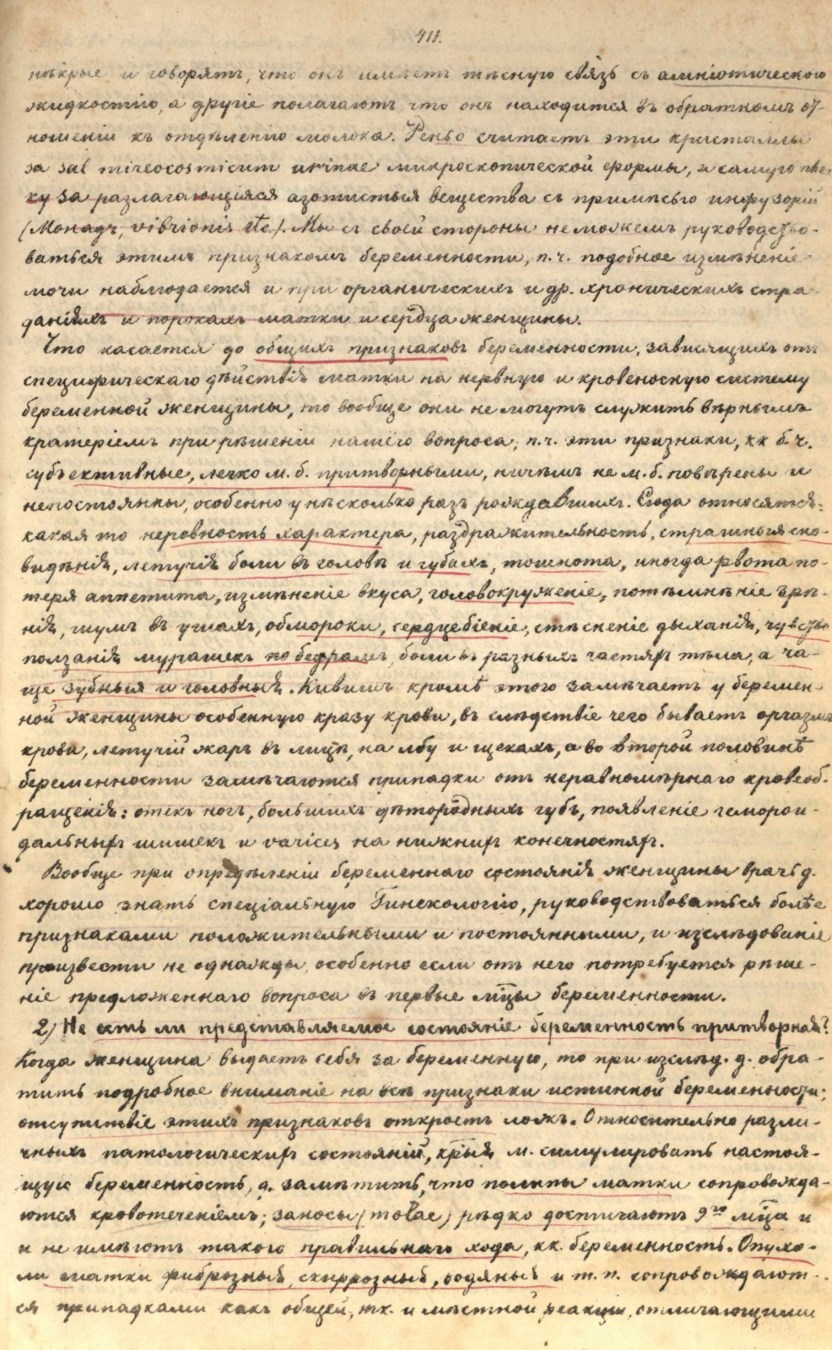 411.
нѣкрые и говорятъ, что онъ имѣетъ тѣсную связь съ амніотическою
жидкостію, а другіе полагаютъ что онъ находится въ обратномъ от-
ношеніи къ отдѣленію молока. считаетъ эти кристаллы
за sal microcosmicum urinae микроскопической формы, и самую пле-
ху за разлагающіяся азотистыя вещества съ примѣсью инфузорій
(Монадъ, vibrionis etc). Мы съ своей стороны не можемъ руководство-
ваться этимъ признакомъ беременности, п. ч. подобное измѣненіе
мочи наблюдается и при органическихъ и др. хроническихъ стра-
даніяхъ и порокахъ матки и сердца женщины.
Что касается до общихъ признаковъ беременности, зависящихъ отъ
специфическаго дѣйствія матки на нервную и кровеносную систему
беременной женщины, то вообще они не могутъ служить вѣрнымъ
кратеріемъ при рѣшеніи нашего вопроса, п. ч. эти признаки, кк б. ч.
субъективные, легко м. б. притворными, ничѣмъ не м. б. повѣрены и
непостоянны, особенно у нѣсколько разъ рождавшихъ. Сюда относятся:
какая то неровность характера, раздражительность, страшныя сно-
видѣнія, летучія боли въ головѣ и губахъ, тошнота, иногда рвота по-
теря аппетита, измѣненіе вкуса, головокруженіе, потемнѣніе зрѣ-
нія, шумъ въ ушахъ, обмороки, сердцебіеніе, стѣсненіе дыханія, чувство
ползанія мурашекъ по бедрамъ, боли въ разныхъ частяхъ тѣла, а ча-
ще зубныя и головныя. Кивишъ кромѣ этого замѣчаетъ у беремен-
ной женщины особенную кразу крови, въ слѣдствіе чего бываетъ оргазмъ
крови, летучій жаръ въ лицѣ, на лбу и щекахъ, а во второй половинѣ
беременности замѣчаются припадки отъ неравномѣрнаго кровеоб-
ращенія: отекъ ногъ, большихъ дѣтородныхъ губъ, появленіе геморои-
дальныхъ шишекъ и varices на нижнихъ конечностяхъ.
Вообще при опредѣленіи беременнаго состоянія женщины врачъ д.
хорошо знать спеціальную Гинекологію, руководствоваться болѣе
признаками положительными и постоянными, и изслѣдованіе
произвести не однажды, особенно если отъ него потребуется рѣше-
ніе предложеннаго вопроса въ первые мцы беременности.
2) Не есть ли представляемое состояніе беременность притворная?
Когда женщина выдаетъ себя за беременную, то при изслѣд. д. обра-
тить подробное вниманіе на всѣ признаки истинной беременности;
отсутствіе этихъ признаковъ откроетъ ложь. Относительно разли-
чныхъ патологическихъ состояній, крыя м. симулировать настоя-
щую беременность, д. замѣтить, что полипы матки сопровожда-
ются кровотеченіемъ; заносы (molae) рѣдко достигаютъ 9го мца и
и не имѣютъ такого правильнаго хода, кк. беременность. Опухо-
ли матки фиброзныя, скиррозныя, водяныя и т. п. сопровождают-
ся припадками какъ общей, тк. и мѣстной реакціи, отличающими